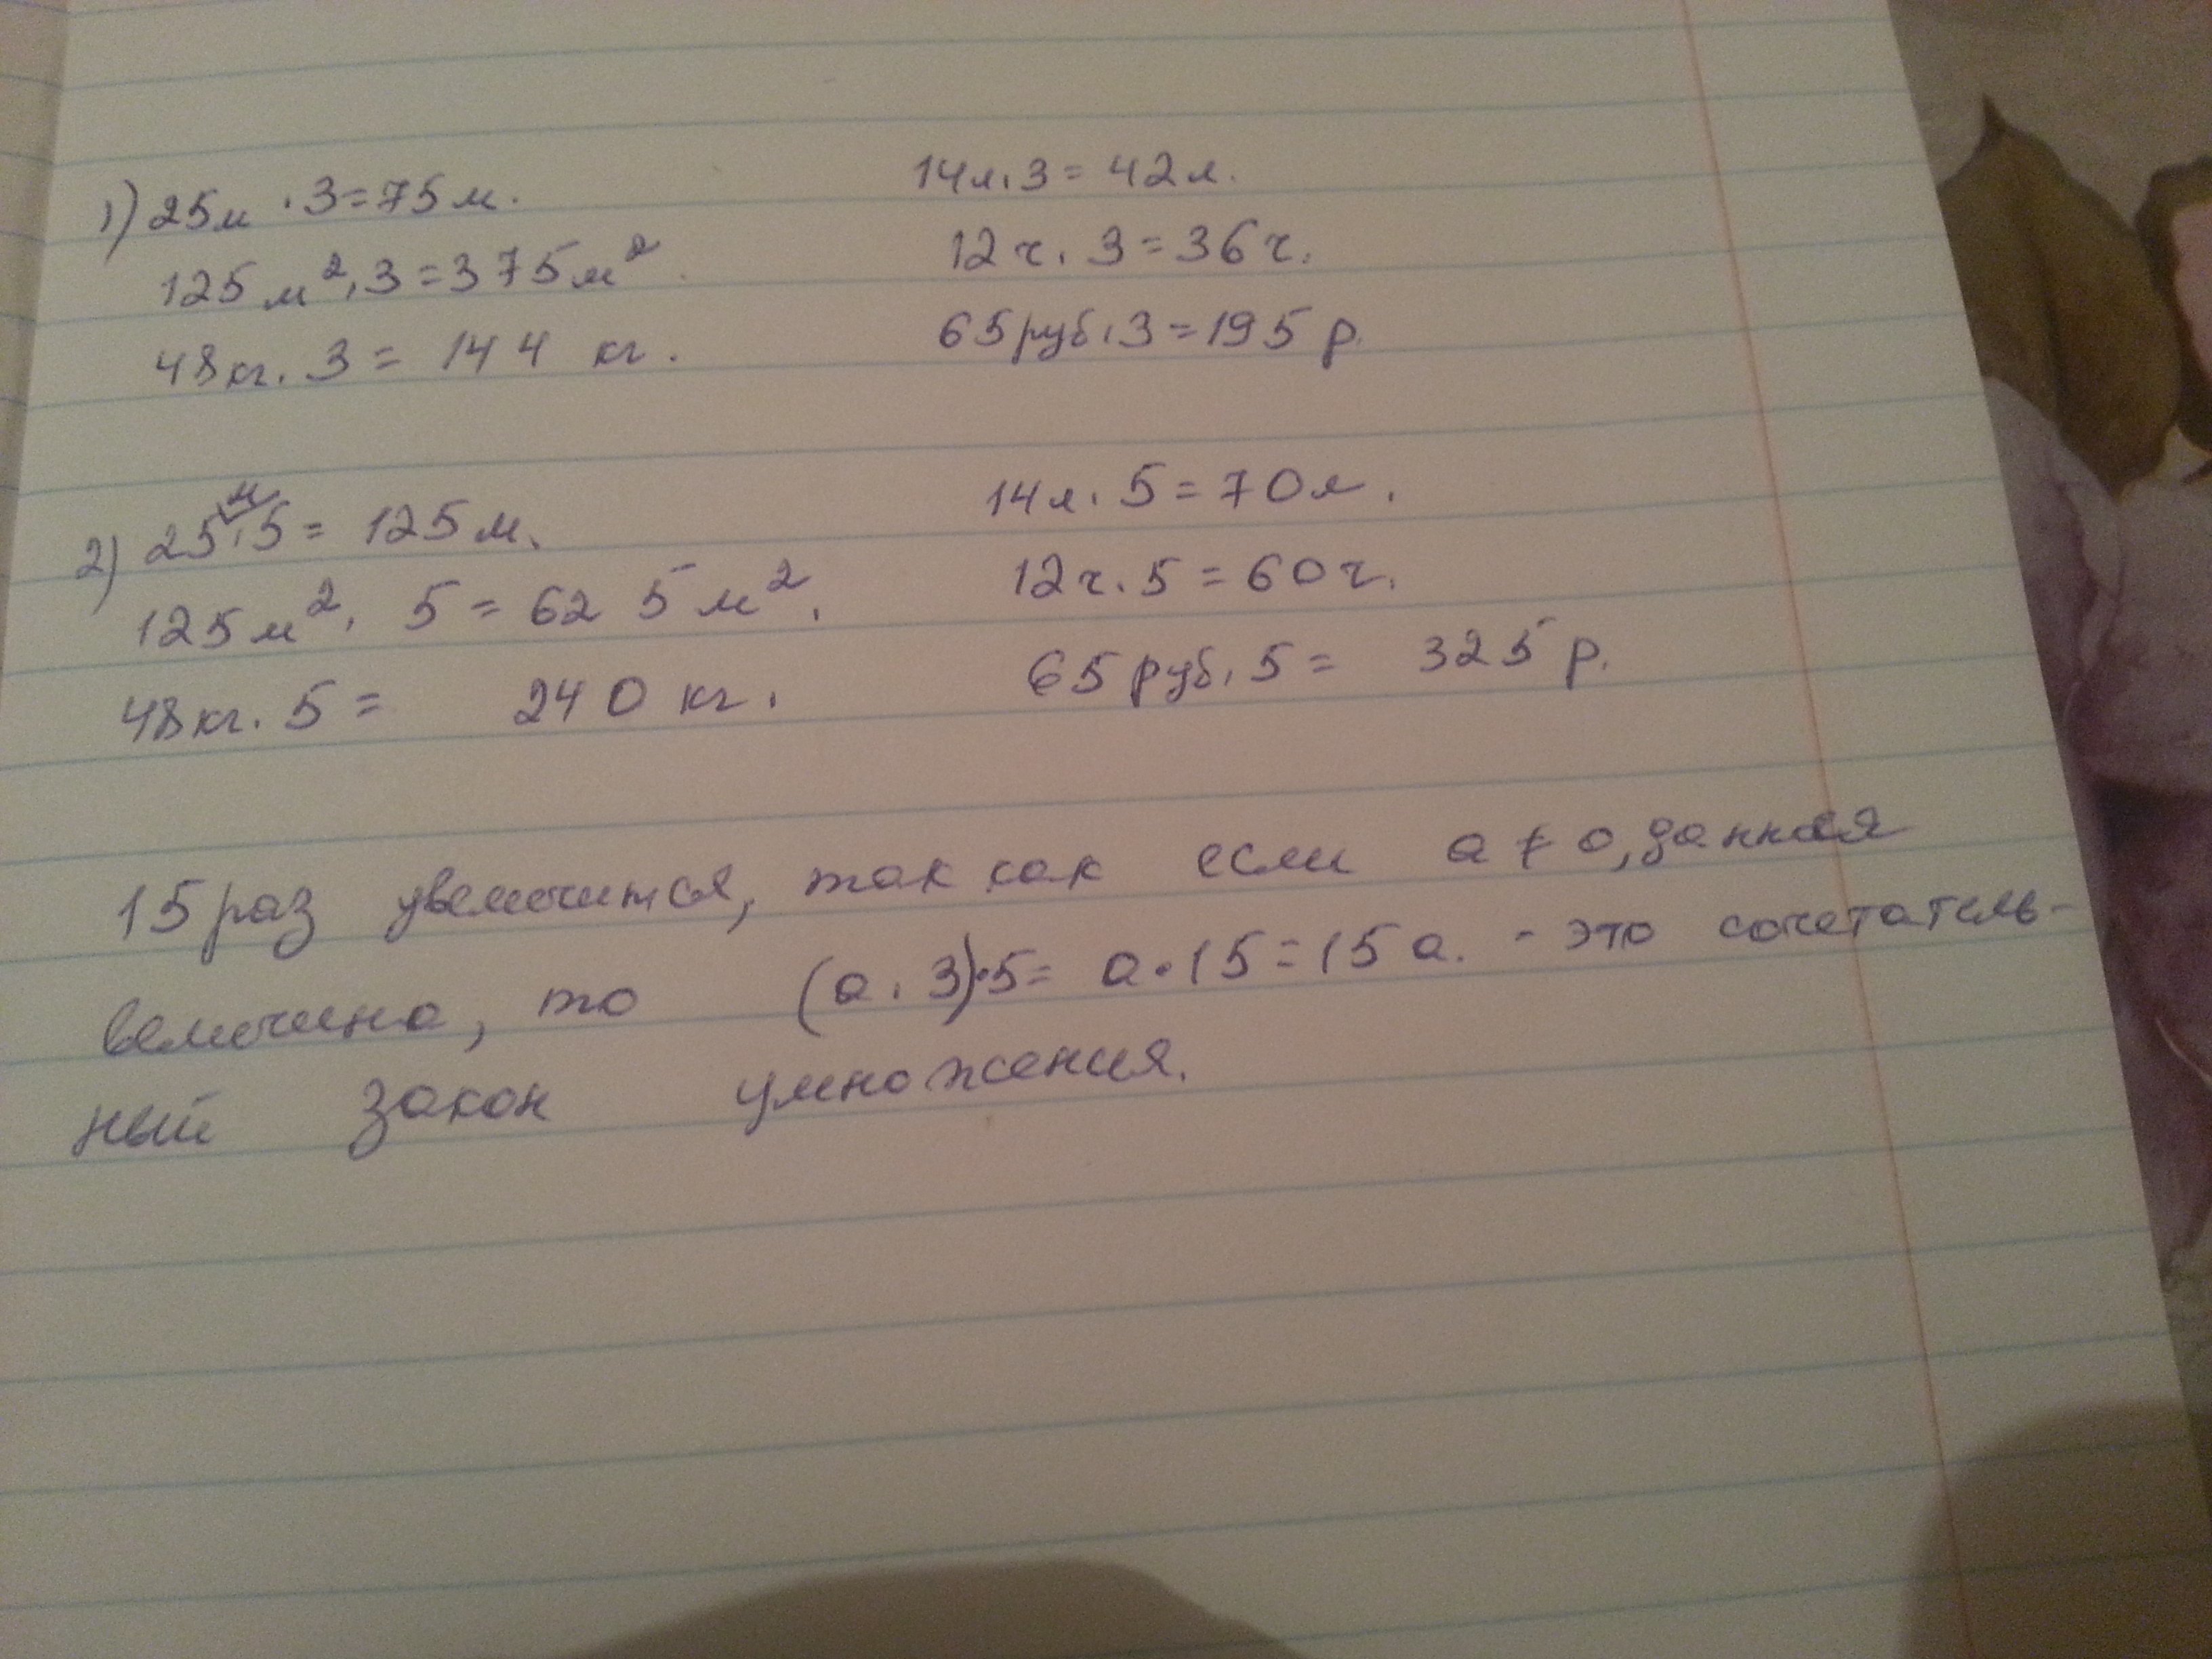 1) 25м · 3 = 75 м.
125 м², 3 = 375 м².
48 кг. 3 = 144 кг.
14л. 3 = 42 л.
12 ч. 3 = 36 ч.
65 руб. 3 = 195 р.
2) 25 м · 5 = 125 м.
125 м², 5 = 625 м².
48 кг. 5 = 240 кг.
14 л. 5 = 70 л.
12 ч. 5 = 60 ч.
65 руб. 5 = 325 р.
15 раз увеличится, так как если a ≠ 0, данная
величина, то (a . 3)·5 = a · 15 = 15 a. - это сочетатель-
ный закон умножения.